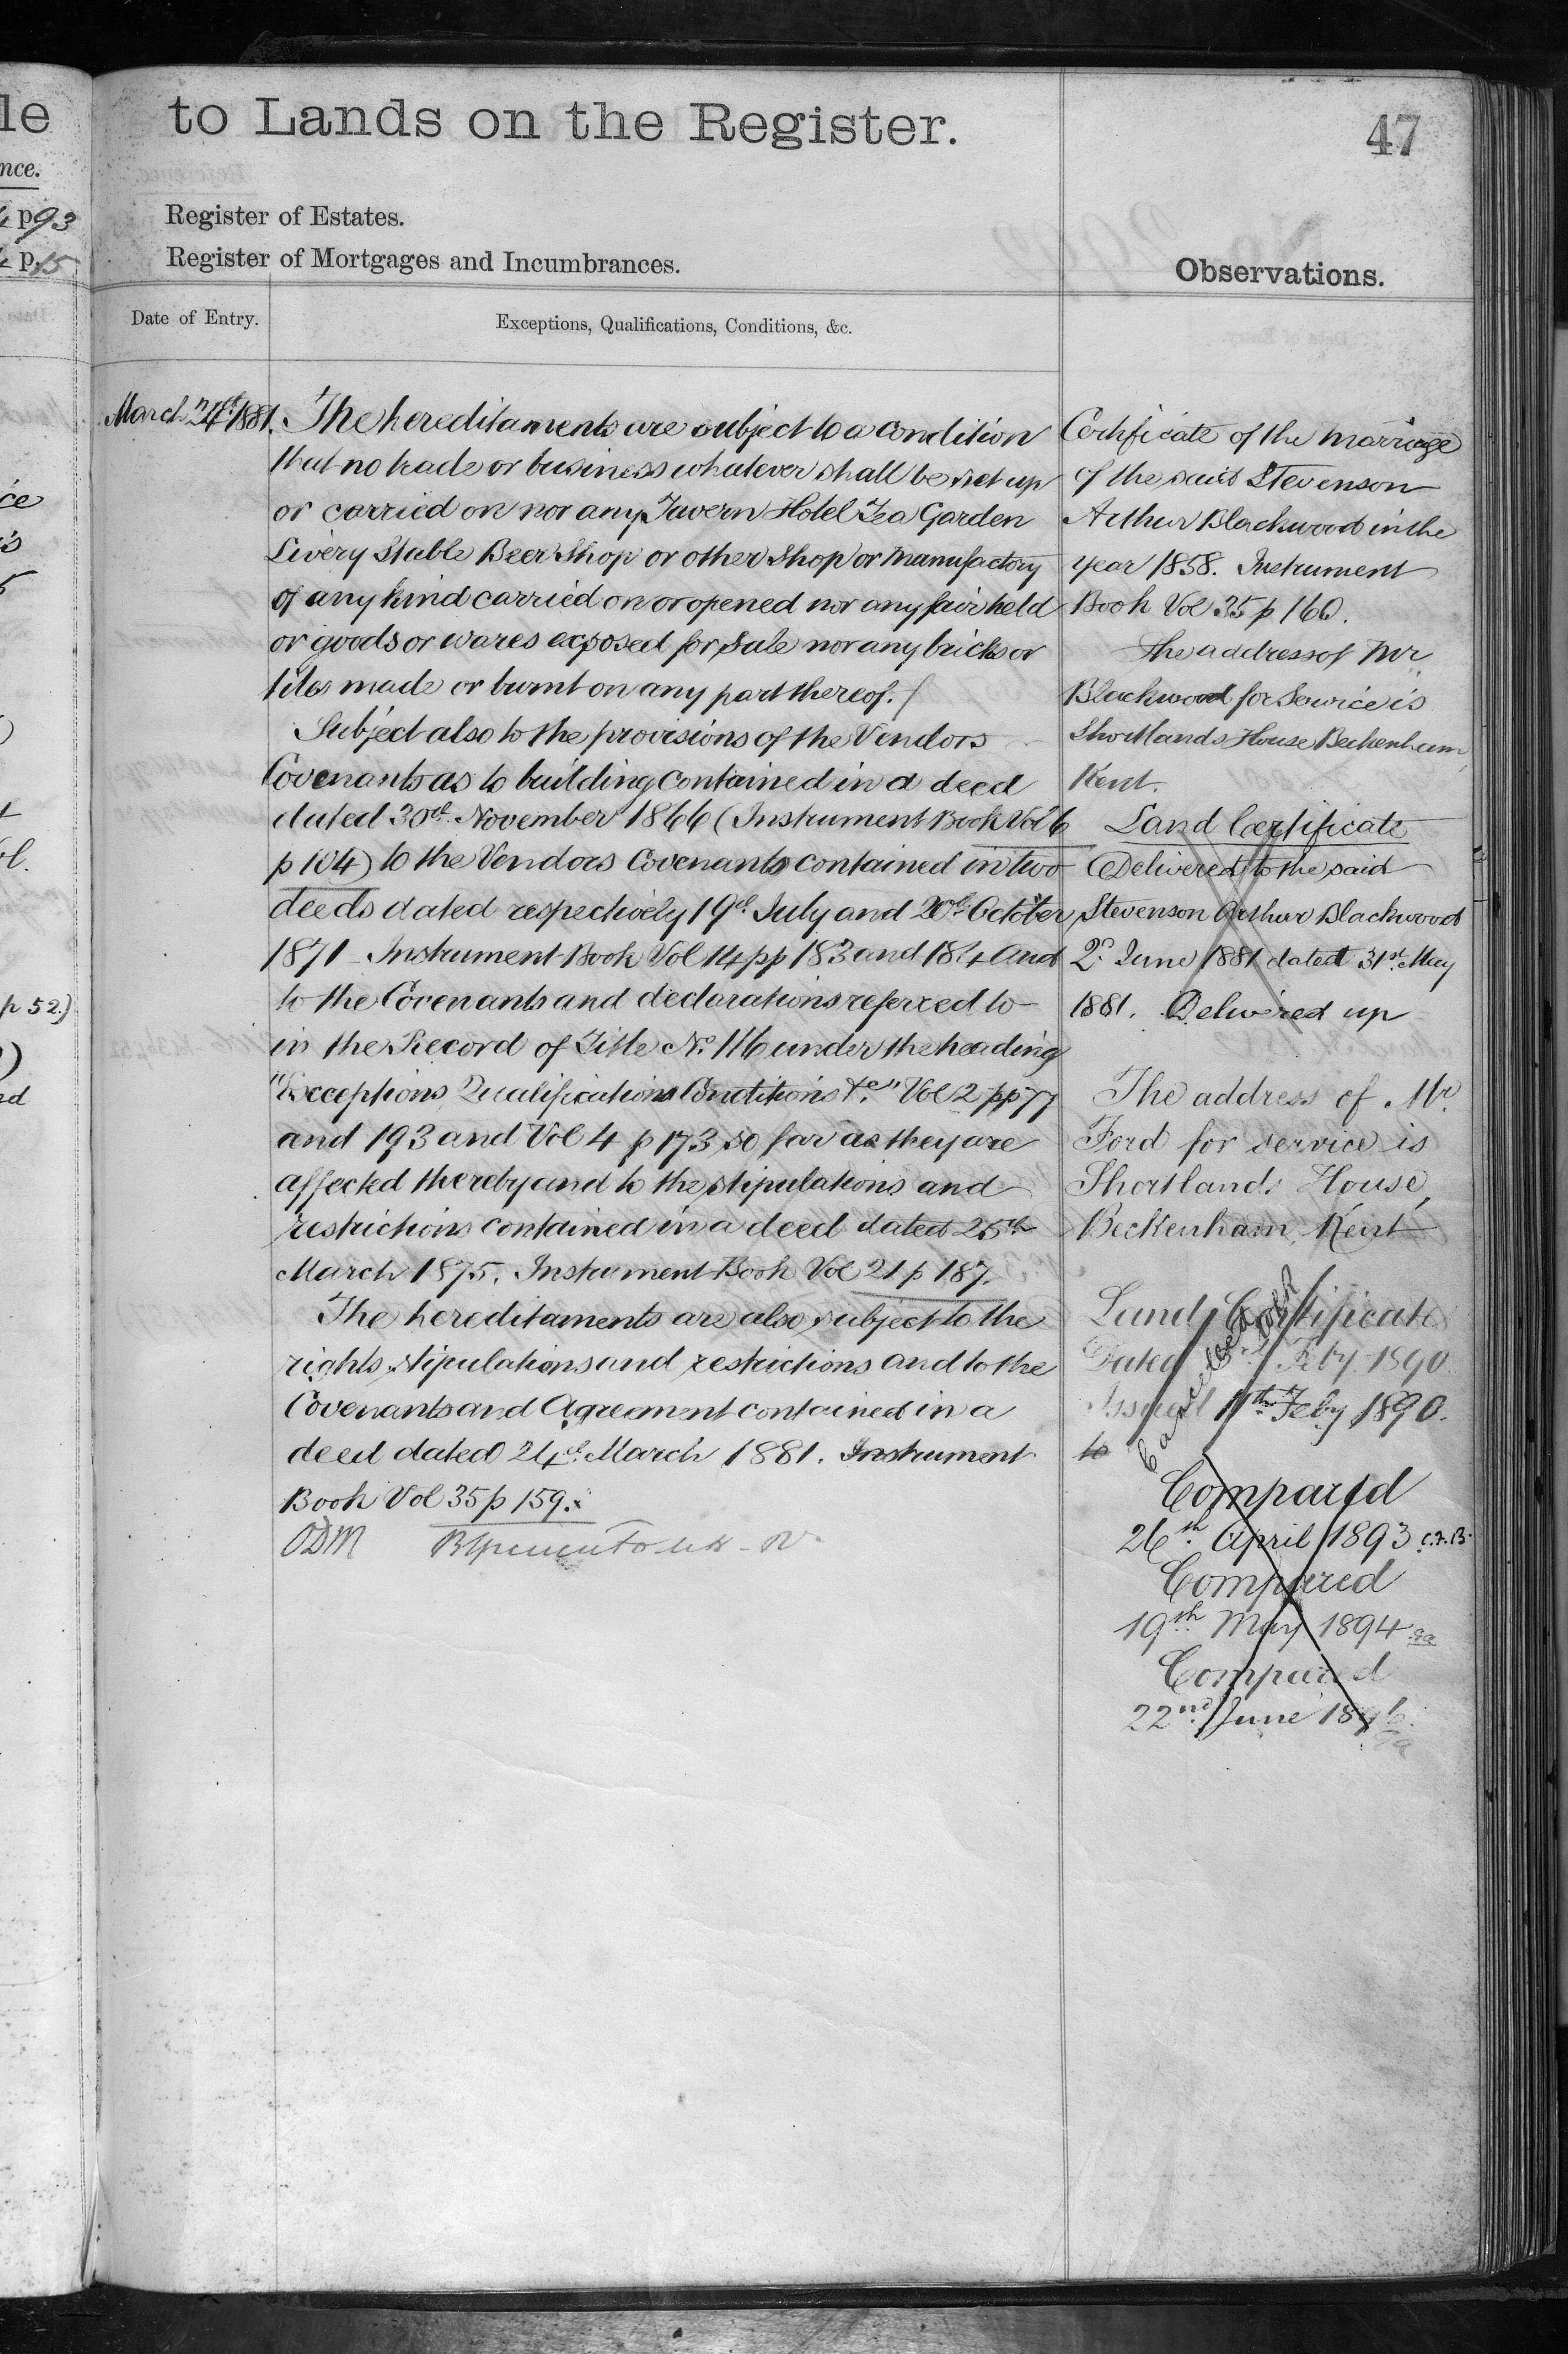 le
nce.
p 93
p. 15
ce
p 52.)
to Lands on the Register.
47
Register of Estates.
Register of Mortgages and Incumbrances.
Observations.
Date of Entry.
Exceptions, Qualifications, Conditions, &c.
March 24th 1881.
The hereditaments are subject to a condition
that no trade or business whatever shall be set up
or carried on nor any Tavern Hotel Tea Garden
Livery Stable Beer Shop or other Shop or Manufactory
of any kind carried on or opened nor any fair held
or goods or wares exposed for sale nor any bricks or
tiles made or burnt on any part thereof.
Subject also to the provisions of the Vendors
Covenants as to building contained in a deed
dated 30th November 1866 (Instrument Book Vol 6
p 104) to the Vendors Covenants contained in two
deeds dated respectively 19th July and 20th October
1871 - Instrument Book Vol 14 pp 183 and 184 and
to the Covenants and declarations referred to
in the Record of Title No. 116 under the heading
"Exceptions Qualifications Conditions &c" Vol 2 pp 77
and 193 and Vol 4 p 173 so far as they are
affected thereby and to the stipulations and
restrictions contained in a deed dated 25th
March 1875. Instrument Book Vol 21 p 187.
The hereditaments are also subject to the
rights stipulations and restrictions and to the
Covenants and Agreement contained in a
deed dated 24th March 1881. Instrument
Book Vol 35 p 159.
ODM
Certificate of the marriage
of the said Stevenson
Arthur Blackwood in the
year 1858. Instrument
Book Vol 35 p 160.
The address of Mr
Blackwood for Service is
Shortlands House Beckenham
Kent.
Land Certificate
Delivered to the said
Stevenson Arthur Blackwood
2d. June 1881 dated 31st May
1881. Delivered up
The address of Mr.
Ford for service is
Shortlands House,
Beckenham, Kent
Land Certificate
Dated Feby 1890.
Issued 11th Feby 1890.
to
Compared
26th April 1893 C.F.B.
Compared
19th May 1894
Compared
22nd June